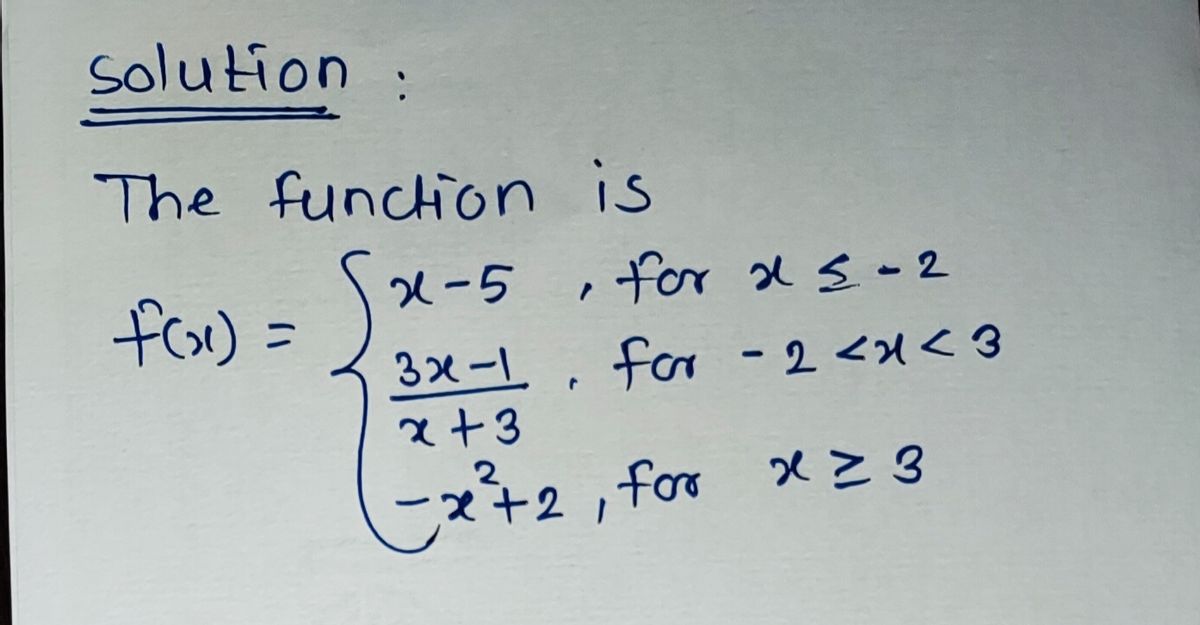 Solution :
The function is
f(x) = { x-5 , for x ≤ -2
3x-1 , for -2 <x< 3
x+3
-x²+2 , for x ≥ 3